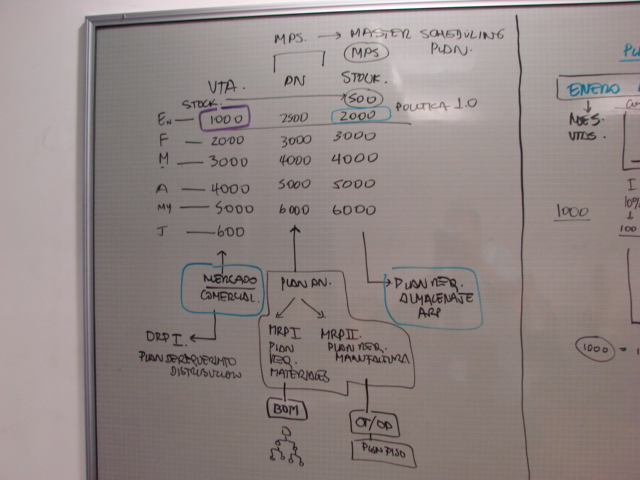 MPS. → MASTER SCHEDULING
MPS PLAN.
VTA. PN STOCK.
STOCK. 500
En — 1000 2500 2000 POLITICA 1.0
F — 2000 3000 3000
M — 3000 4000 4000
A — 4000 5000 5000
MY — 5000 6000 6000
J — 600
MERCADO
COMERCIAL.
PLAN AN.
PLAN REQ.
ALMACENAJE
ARP
DRP I.
PLAN DE REQUERIMTO
DISTRIBUCION
MRP I
PLAN
REQ.
MATERIALES
MRP II.
PLAN REQ.
MANUFACTURA
BOM
OT/OP
PLAN PISO
ENERO
MES.
VTAS.
1000
I
10%
100
1000